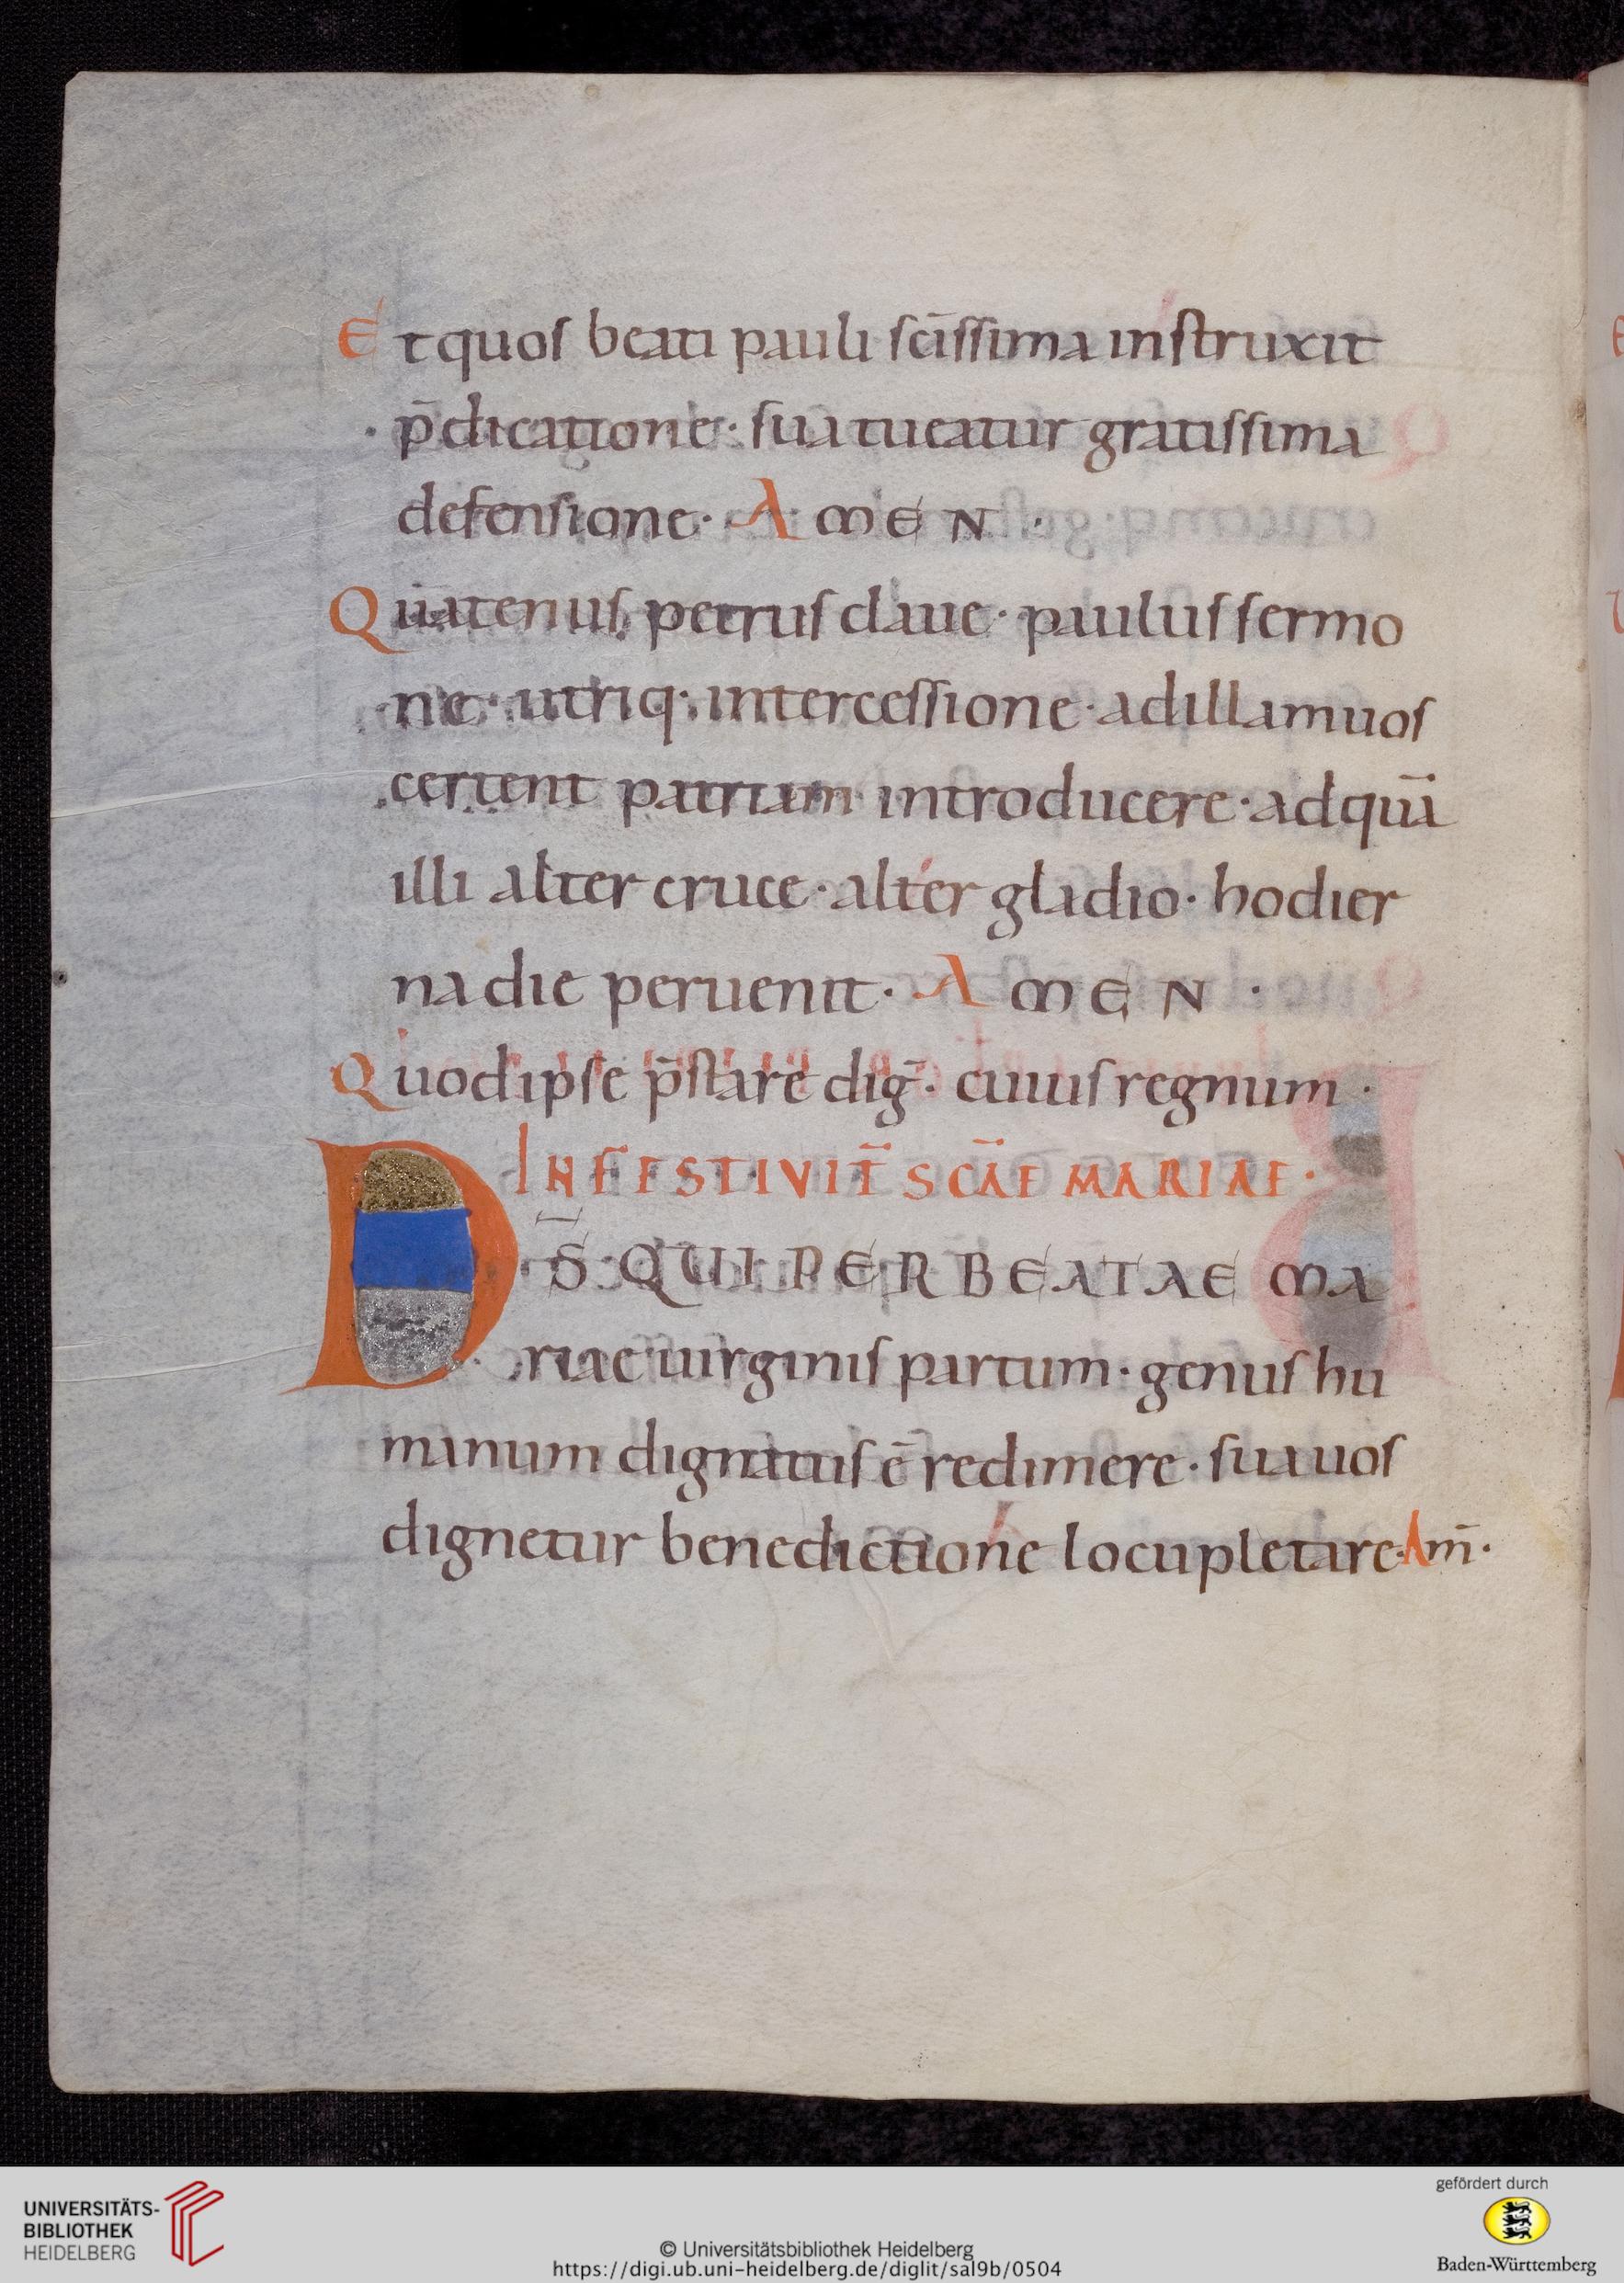 Et quos beati pauli sc̄issima instruxit
p̄dicatione· sua tueatur gratissima
defensione· AMEN·
Quatenus petrus claue· paulus sermo
ne· utriq· intercessione· ad illam uos
certent patriam introducere· ad quā
illi alter cruce· alter gladio· hodier
na die peruenit· AMEN·
Quod ipse p̄stare diḡ· cuius regnum·
IN FESTIVIT̄ SCĀE MARIAE·
DS̄ QUI PER BEATAE MA
riae uirginis partum· genus hu
manum dignatus ē redimere· sua uos
dignetur benedictione locupletare· Am̄·
UNIVERSITÄTS-
BIBLIOTHEK
HEIDELBERG
© Universitätsbibliothek Heidelberg
https://digi.ub.uni-heidelberg.de/diglit/sal9b/0504
gefördert durch
Baden-Württemberg